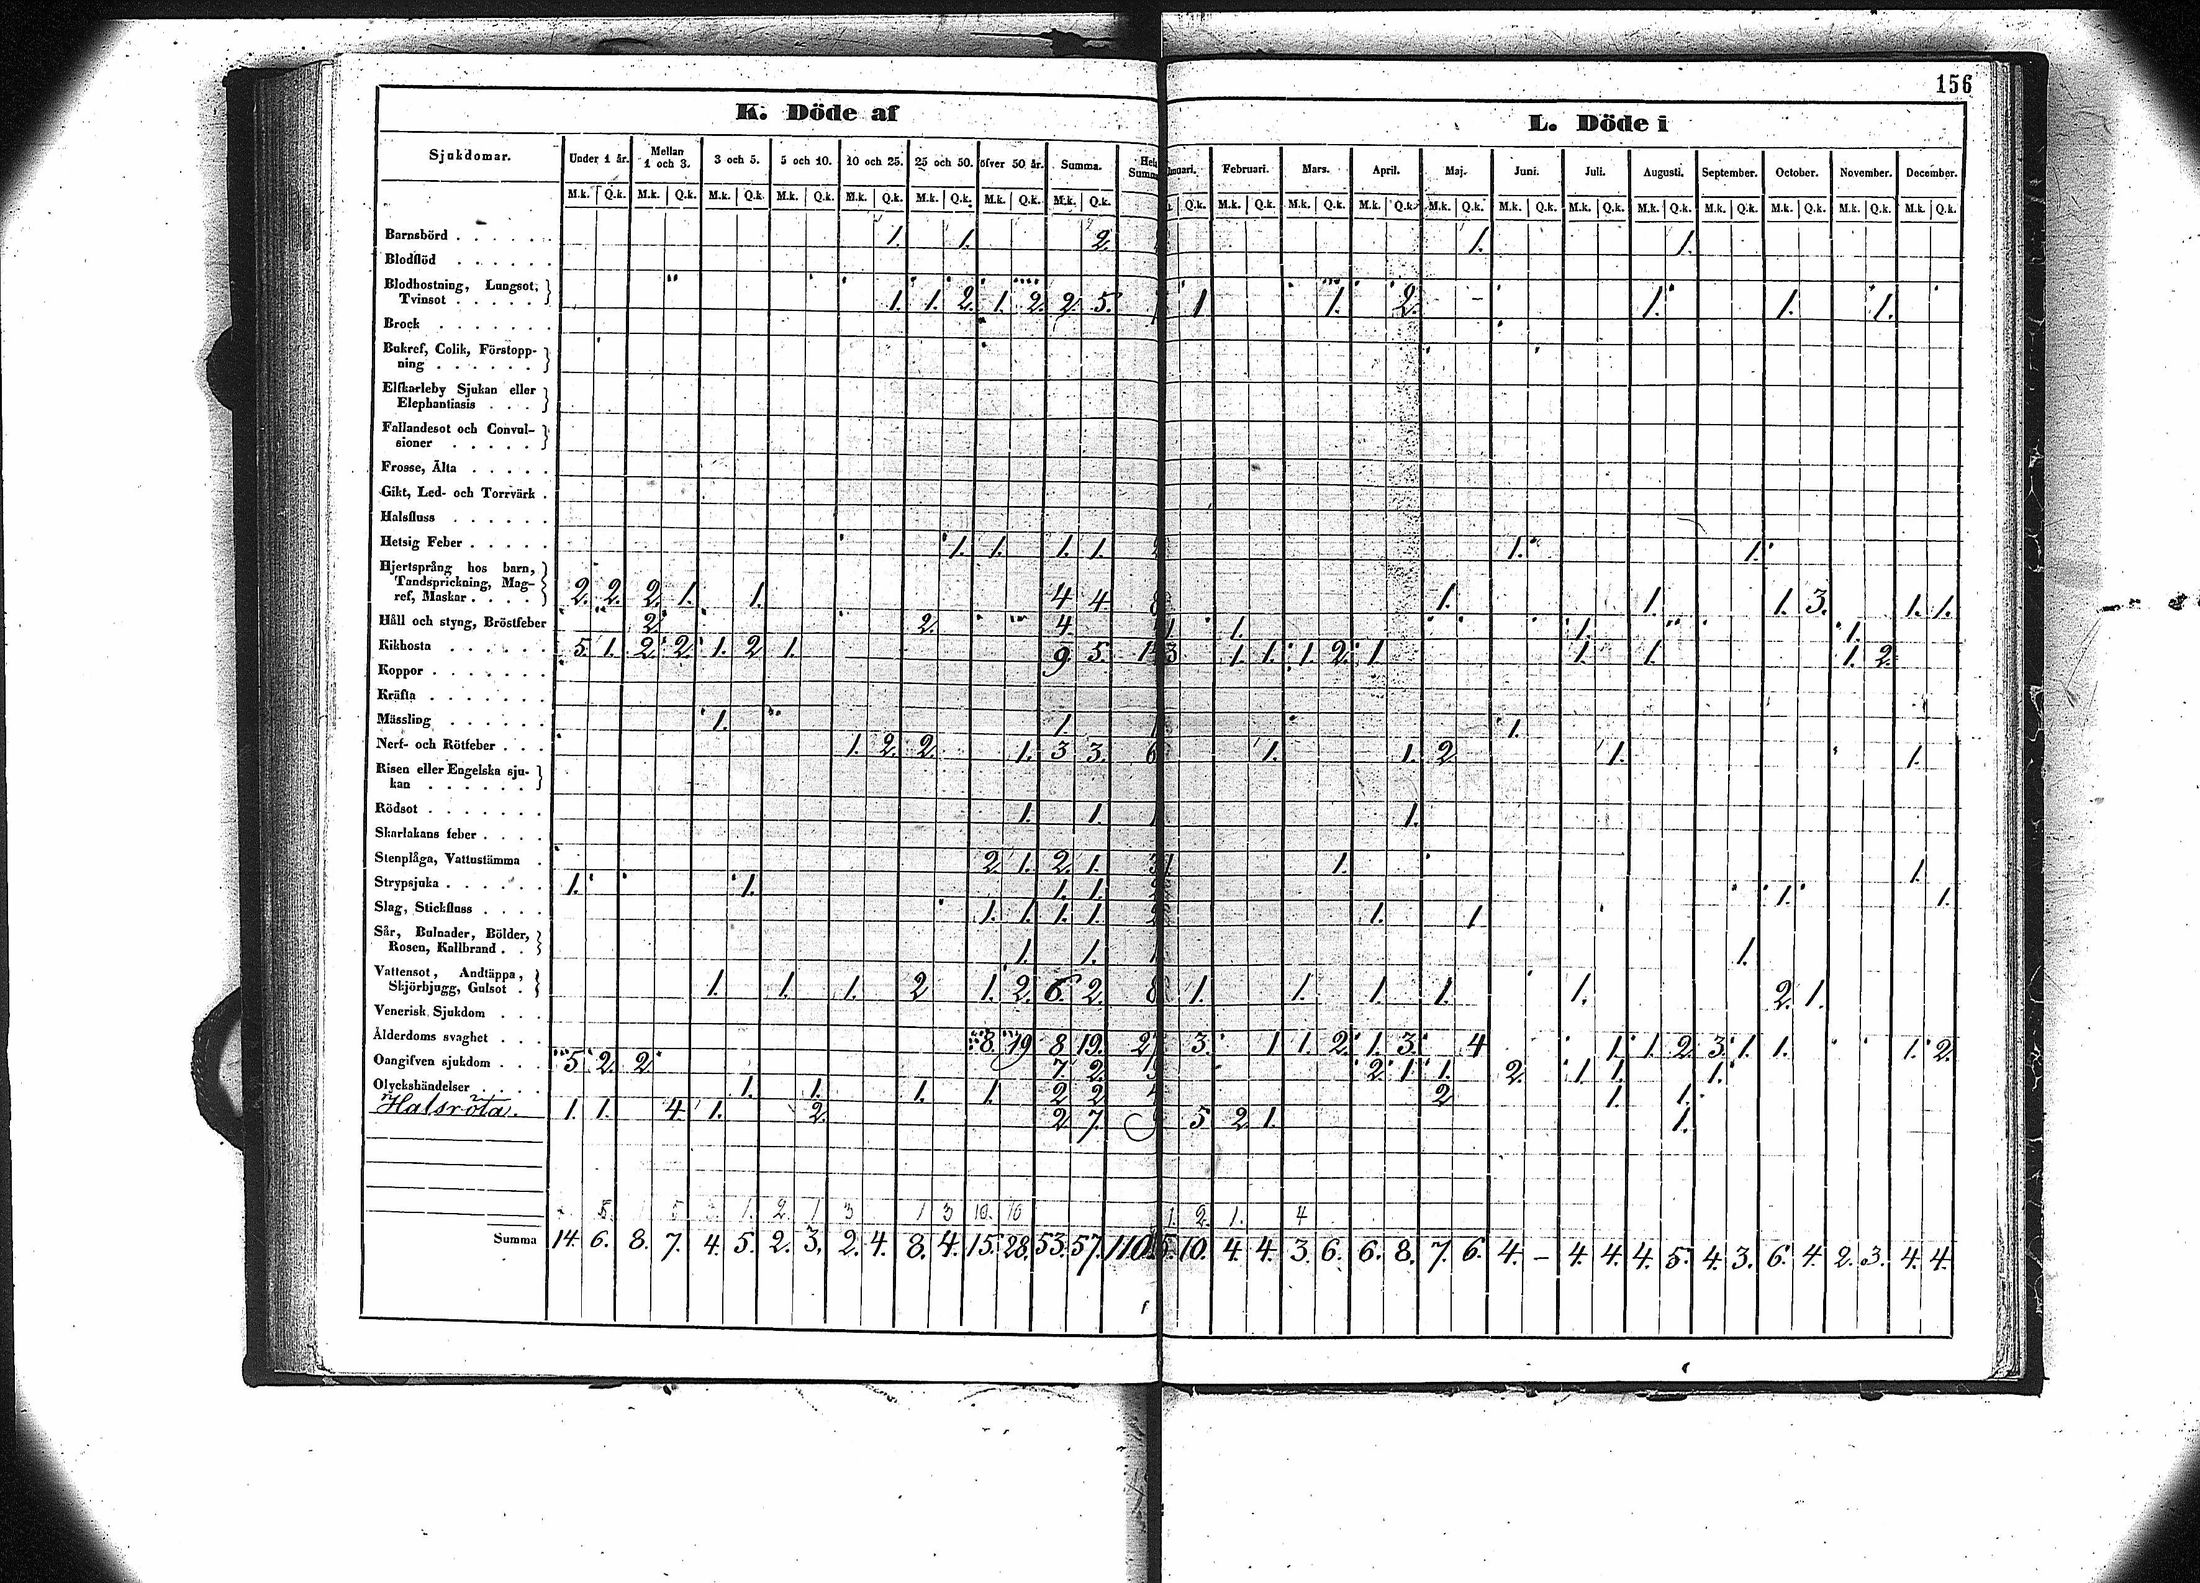 156
K. Döde af
L. Döde i
Sjukdomar. Under 1 år. Mellan 1 och 3. 3 och 5. 5 och 10. 10 och 25. 25 och 50. öfver 50 år. Summa. Februari. Mars. April. Maj. Juni. Juli. Augusti. September. October. November. December.
M.k. Q.k. M.k. Q.k. M.k. Q.k. M.k. Q.k. M.k. Q.k. M.k. Q.k. M.k. Q.k. M.k. Q.k. Q.k. M.k. Q.k. M.k. Q.k. M.k. Q.k. M.k. Q.k. M.k. Q.k. M.k. Q.k. M.k. Q.k. M.k. Q.k. M.k. Q.k. M.k. Q.k. M.k. Q.k.
Barnsbörd 1. 1. 2. 1. 1.
Blodflöd
Blodhostning, Lungsot,
Tvinsot 1. 1. 2. 1. 2. 2. 5. 1 1. 2. 1. 1. 1.
Brock
Bukref, Colik, Förstopp-
ning
Elfkarleby Sjukan eller
Elephantiasis
Fallandesot och Convul-
sioner
Frosse, Älta
Gikt, Led- och Torrvärk
Halsfluss
Hetsig Feber 1. 1. 1. 1. 2 1. 1.
Hjertsprång hos barn,
Tandsprickning, Mag-
ref, Maskar 2. 2. 2. 1. 1. 4 4. 8 1. 1. 1. 3. 1. 1.
Håll och styng, Bröstfeber 2. 2. 4. 1. 1. 1. 1.
Kikhosta 5. 1. 2. 2. 1. 2 1. 9. 5. 14 3 1. 1. 1. 2. 1 1. 1. 1. 2.
Koppor
Kräfta
Mässling 1. 1. 1 1.
Nerf- och Rötfeber 1. 2. 2. 1. 3 3. 6 1. 1. 2 1. 1.
Risen eller Engelska sju-
kan
Rödsot 1. 1. 1 1.
Skarlakans feber
Stenplåga, Vattustämma 2. 1. 2. 1. 3 1. 1. 1.
Strypsjuka 1. 1. 1. 1. 2 1. 1.
Slag, Stickfluss 1. 1. 1. 1. 2 1. 1
Sår, Bulnader, Bölder,
Rosen, Kallbrand 1. 1. 1 1.
Vattensot, Andtäppa,
Skjörbjugg, Gulsot 1. 1. 1. 2 1. 2. 6. 2. 8 1. 1. 1. 1. 1. 2. 1.
Venerisk Sjukdom
Ålderdoms svaghet 8. 19 8 19. 27 3. 1 1. 2. 1. 3. 4 1. 1. 2. 3. 1. 1. 1. 2.
Oangifven sjukdom 5. 2. 2 7. 2. 2. 1. 1. 2. 1. 1. 1.
Olyckshändelser 1. 1. 1. 1. 2 2 4 2 1. 1.
Halsröta. 1. 1. 4. 1. 2. 2 7. 5 2 1. 1.
Summa 14. 6. 8. 7. 4. 5. 2. 3. 2. 4. 8. 4. 15. 28. 53. 57. 110. 5. 10. 4. 4. 3. 6. 6. 8. 7. 6. 4. – 4. 4. 4. 5. 4. 3. 6. 4. 2. 3. 4. 4.